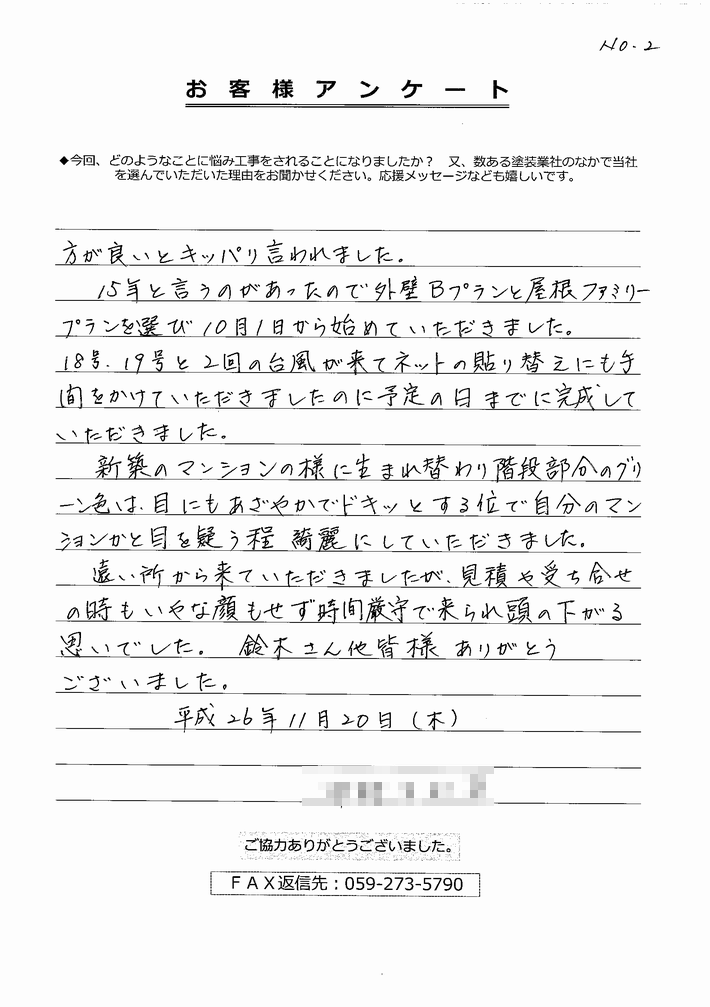 NO.2
お客様アンケート
◆今回、どのようなことに悩み工事をされることになりましたか？　又、数ある塗装業社のなかで当社
を選んでいただいた理由をお聞かせください。応援メッセージなども嬉しいです。
方が良いとキッパリ言われました。
15年と言うのがあったので外壁Bプランと屋根ファミリー
プランを選び10月1日から始めていただきました。
18号、19号と2回の台風が来てネットの貼り替えにも手
間をかけていただきましたのに予定の日までに完成して
いただきました。
新築のマンションの様に生まれ替わり階段部分のグリ
ーン色は、目にもあざやかでドキッとする位で自分のマン
ションかと目を疑う程 綺麗にしていただきました。
遠い所から来ていただきましたが、見積や受ち合せ
の時もいやな顔もせず時間厳守で来られ頭の下がる
思いでした。　鈴木さん他皆様 ありがとう
ございました。
平成26年11月20日（木）
ご協力ありがとうございました。
ＦＡＸ返信先：059-273-5790